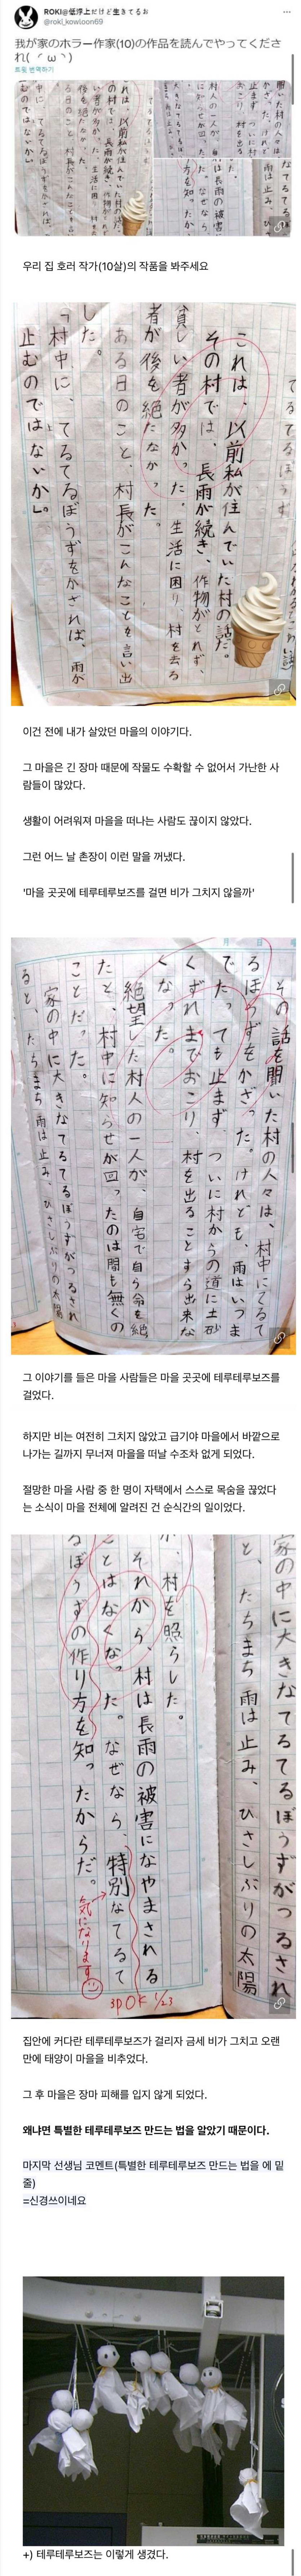 ROKI@低浮上だけど生きてるお
@roki_kowloon69
我が家のホラー作家(10)の作品を読んでやってくださ
れ(´ω`)
트윗 번역하기
우리 집 호러 작가(10살)의 작품을 봐주세요
これは、以前私が住んでいた村の話だ。
その村では、長雨が続き、作物がとれず、
貧しい者が多かった。生活に困り、村を去る
者が後を絶たなかった。
ある日のこと、村長がこんなことを言い出
した。
「村中に、てるてるぼうずをかざれば、雨が
止むのではないか」。
이건 전에 내가 살았던 마을의 이야기다.
그 마을은 긴 장마 때문에 작물도 수확할 수 없어서 가난한 사
람들이 많았다.
생활이 어려워져 마을을 떠나는 사람도 끊이지 않았다.
그런 어느 날 촌장이 이런 말을 꺼냈다.
'마을 곳곳에 테루테루보즈를 걸면 비가 그치지 않을까'
月 日
その話を聞いた村の人々は、村中にてるて
るぼうずをかざった。けれども、雨はいつま
でたっても止まず、ついに村からの道に土砂
くずれまでおこり、村を出ることすら出来な
くなった。
絶望した村人の一人が、自宅で自ら命を絶
たと、村中に知らせが回ったのは間も無くの
ことだった。
家の中に大きなてるてるぼうずがつるされ
ると、たちまち雨は止み、ひさしぶりの太陽
그 이야기를 들은 마을 사람들은 마을 곳곳에 테루테루보즈를
걸었다.
하지만 비는 여전히 그치지 않았고 급기야 마을에서 바깥으로
나가는 길까지 무너져 마을을 떠날 수조차 없게 되었다.
절망한 마을 사람 중 한 명이 자택에서 스스로 목숨을 끊었다
는 소식이 마을 전체에 알려진 건 순식간의 일이었다.
家の中に大きなてるてるぼうずがつるされ
と、たちまち雨は止み、ひさしぶりの太陽
が、村を照らした。
それから、村は長雨の被害になやまされる
ことはなくなった。なぜなら、特別なてるて
るぼうずの作り方を知ったからだ。
気になります
3P OK 1/23
집안에 커다란 테루테루보즈가 걸리자 금세 비가 그치고 오랜
만에 태양이 마을을 비추었다.
그 후 마을은 장마 피해를 입지 않게 되었다.
왜냐면 특별한 테루테루보즈 만드는 법을 알았기 때문이다.
마지막 선생님 코멘트(특별한 테루테루보즈 만드는 법을 에 밑
줄)
=신경쓰이네요
+) 테루테루보즈는 이렇게 생겼다.